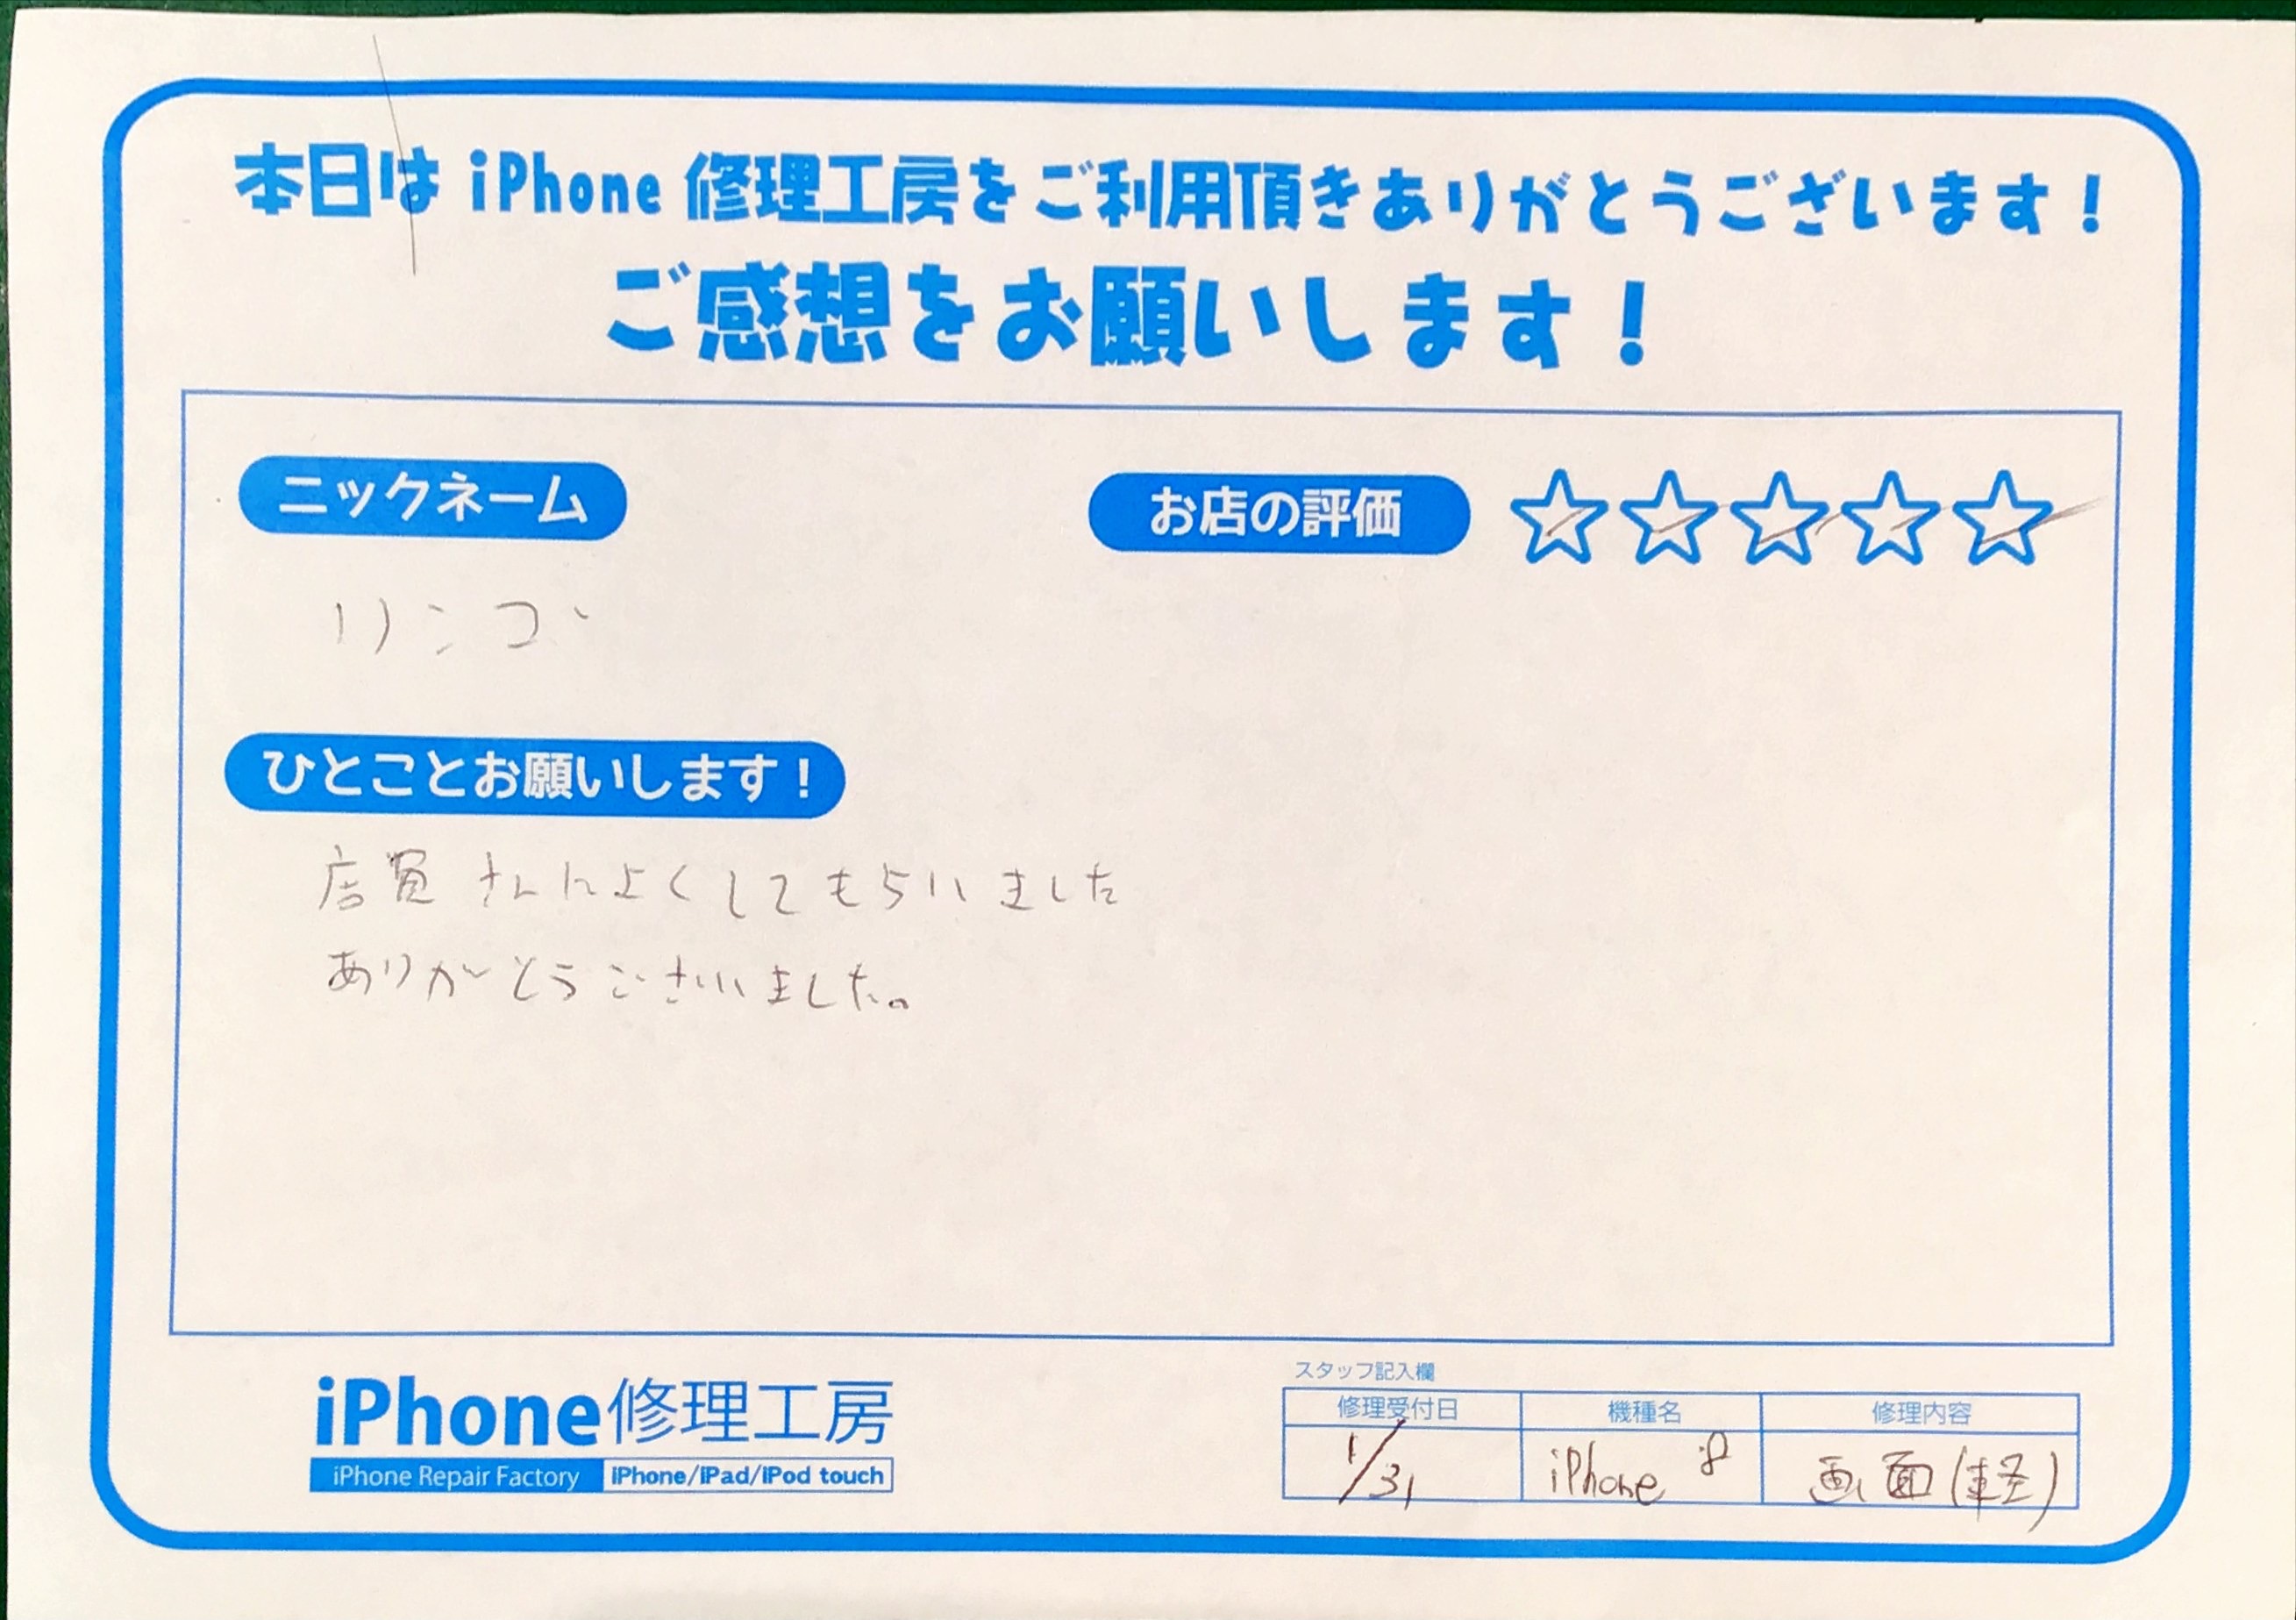 本日は iPhone 修理工房をご利用頂きありがとうございます！
ご感想をお願いします！
ニックネーム
お店の評価 ☆☆☆☆☆
リンゴ
ひとことお願いします！
店員さんによくしてもらいました
ありがとうございました。
iPhone修理工房
iPhone Repair Factory iPhone/iPad/iPod touch
スタッフ記入欄
修理受付日 機種名 修理内容
1/31 iPhone 8 画面(軽)